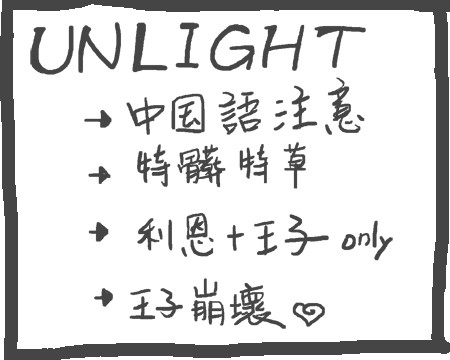 UNLIGHT
→ 中国語注意
→ 特髒特草
→ 利恩+王子 only
→ 王子崩壞♡